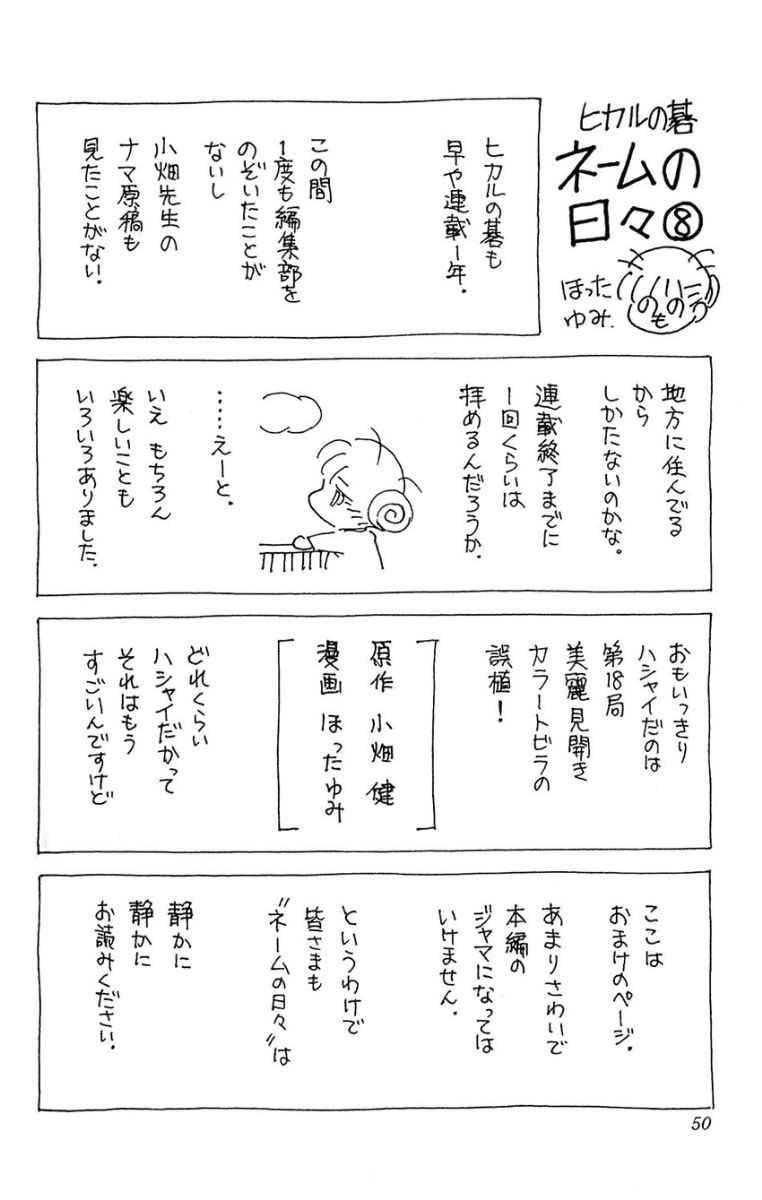 ヒカルの碁
ネームの
日々⑧
ほった
ゆみ.
ヒカルの碁も
早や連載1年.
この間
1度も編集部を
のぞいたことが
ないし
小畑先生の
ナマ原稿も
見たことがない.
地方に住んでる
から
しかたないのかな。
連載終了までに
1回くらいは
拝めるんだろうか.
……えーと.
いえ もちろん
楽しいことも
いろいろありました.
おもいっきり
ハシャイだのは
第18局
美麗見開き
カラートビラの
誤植!
原作 小畑 健
漫画 ほったゆみ
どれくらい
ハシャイだかって
それはもう
すごいんですけど
ここは
おまけのページ.
あまりさわいで
本編の
ジャマになっては
いけません.
というわけで
皆さまも
〝ネームの日々〟は
静かに
静かに
お読みください.
50